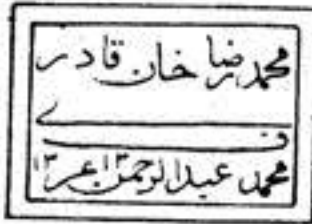 محمد رضا خان قادر
ے
ف
محمد عبدالرحمن عر